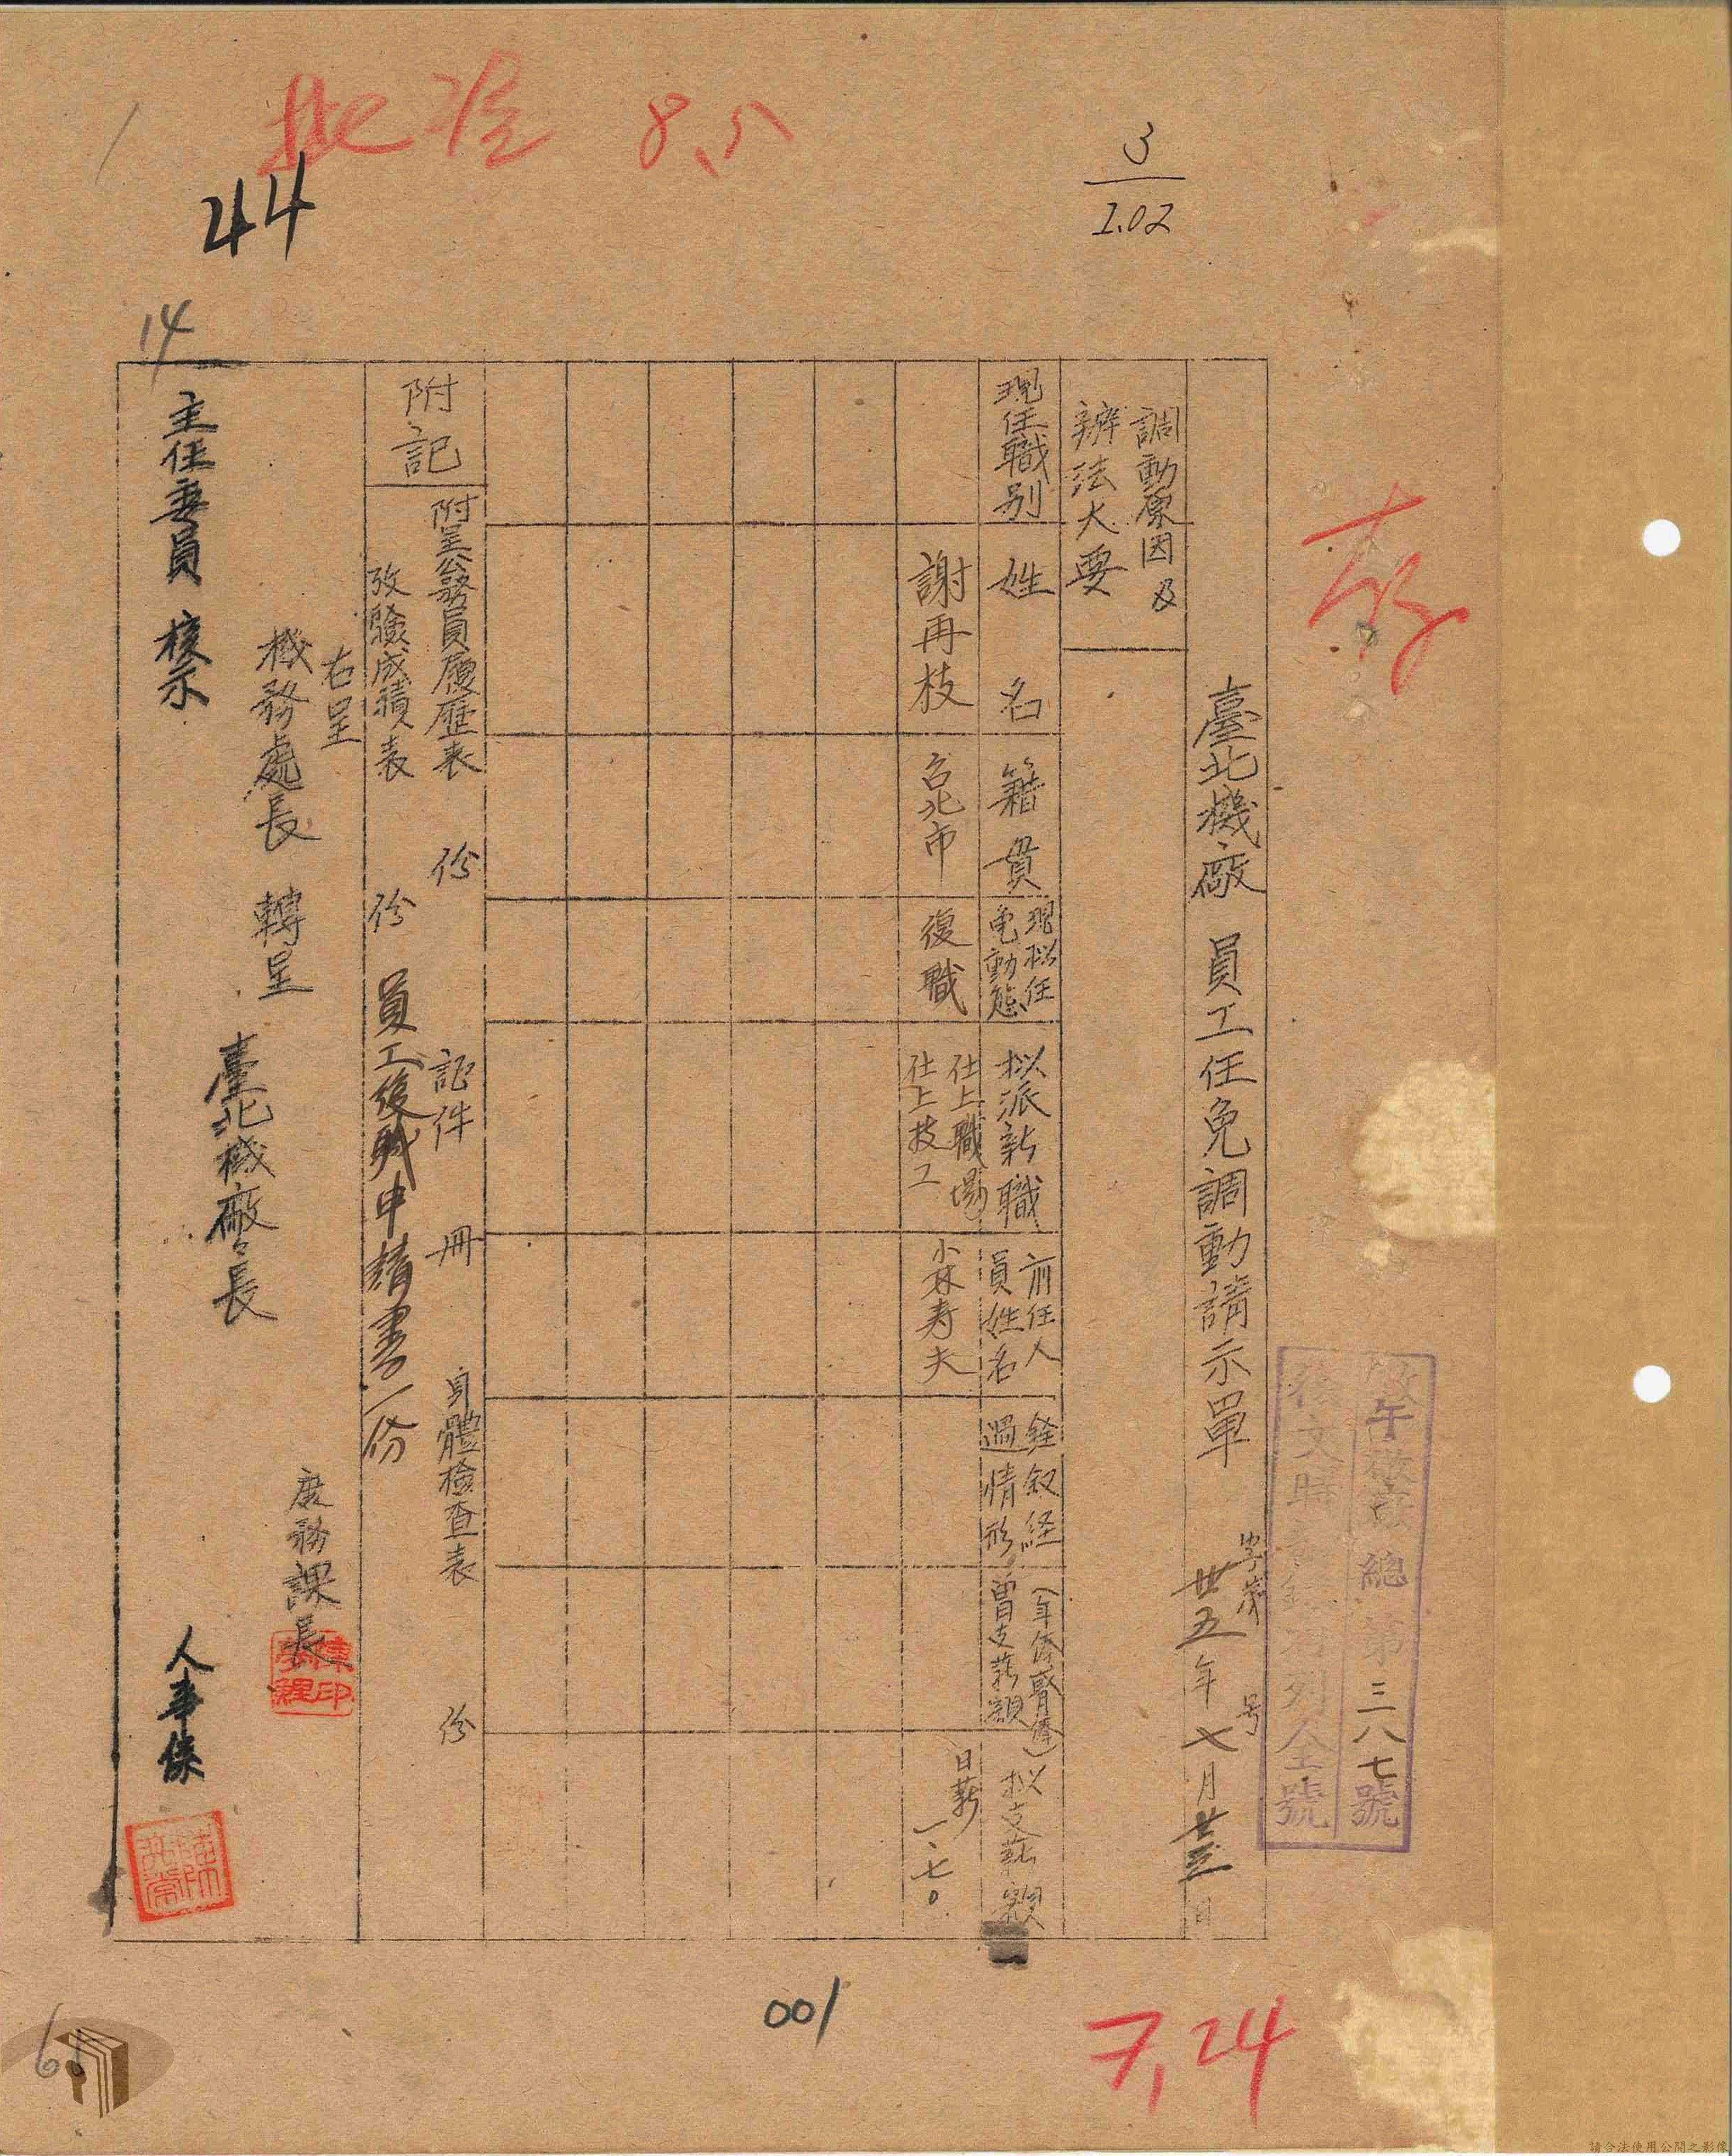 批准 8,5
3
1.02
44
14
存
午敬
總第三八七號
復文時
列全號
臺北機廠 員工任免調動請示單
字第 号
卅五年七月廿三日
調動原因及
辦法大要
現任職別
姓名
籍貫
現拟任
免動態
拟派新職
前任人
員姓名
銓叙経
過情形
(年俸腎俸)
曾支薪額
拟支薪額
謝再枝
台北市
復職
仕上職場
仕上技工
小森寿夫
日薪
一、七〇
附記
附呈公務員履歴表 份 証件 冊 身體檢查表 份
攷驗成績表 份 員工復职申請書一份
右呈
機務處長 轉呈
主任委員 核示
臺北機廠々長
庶務課長
人事係
001
7,24
請合法使用公開之影像